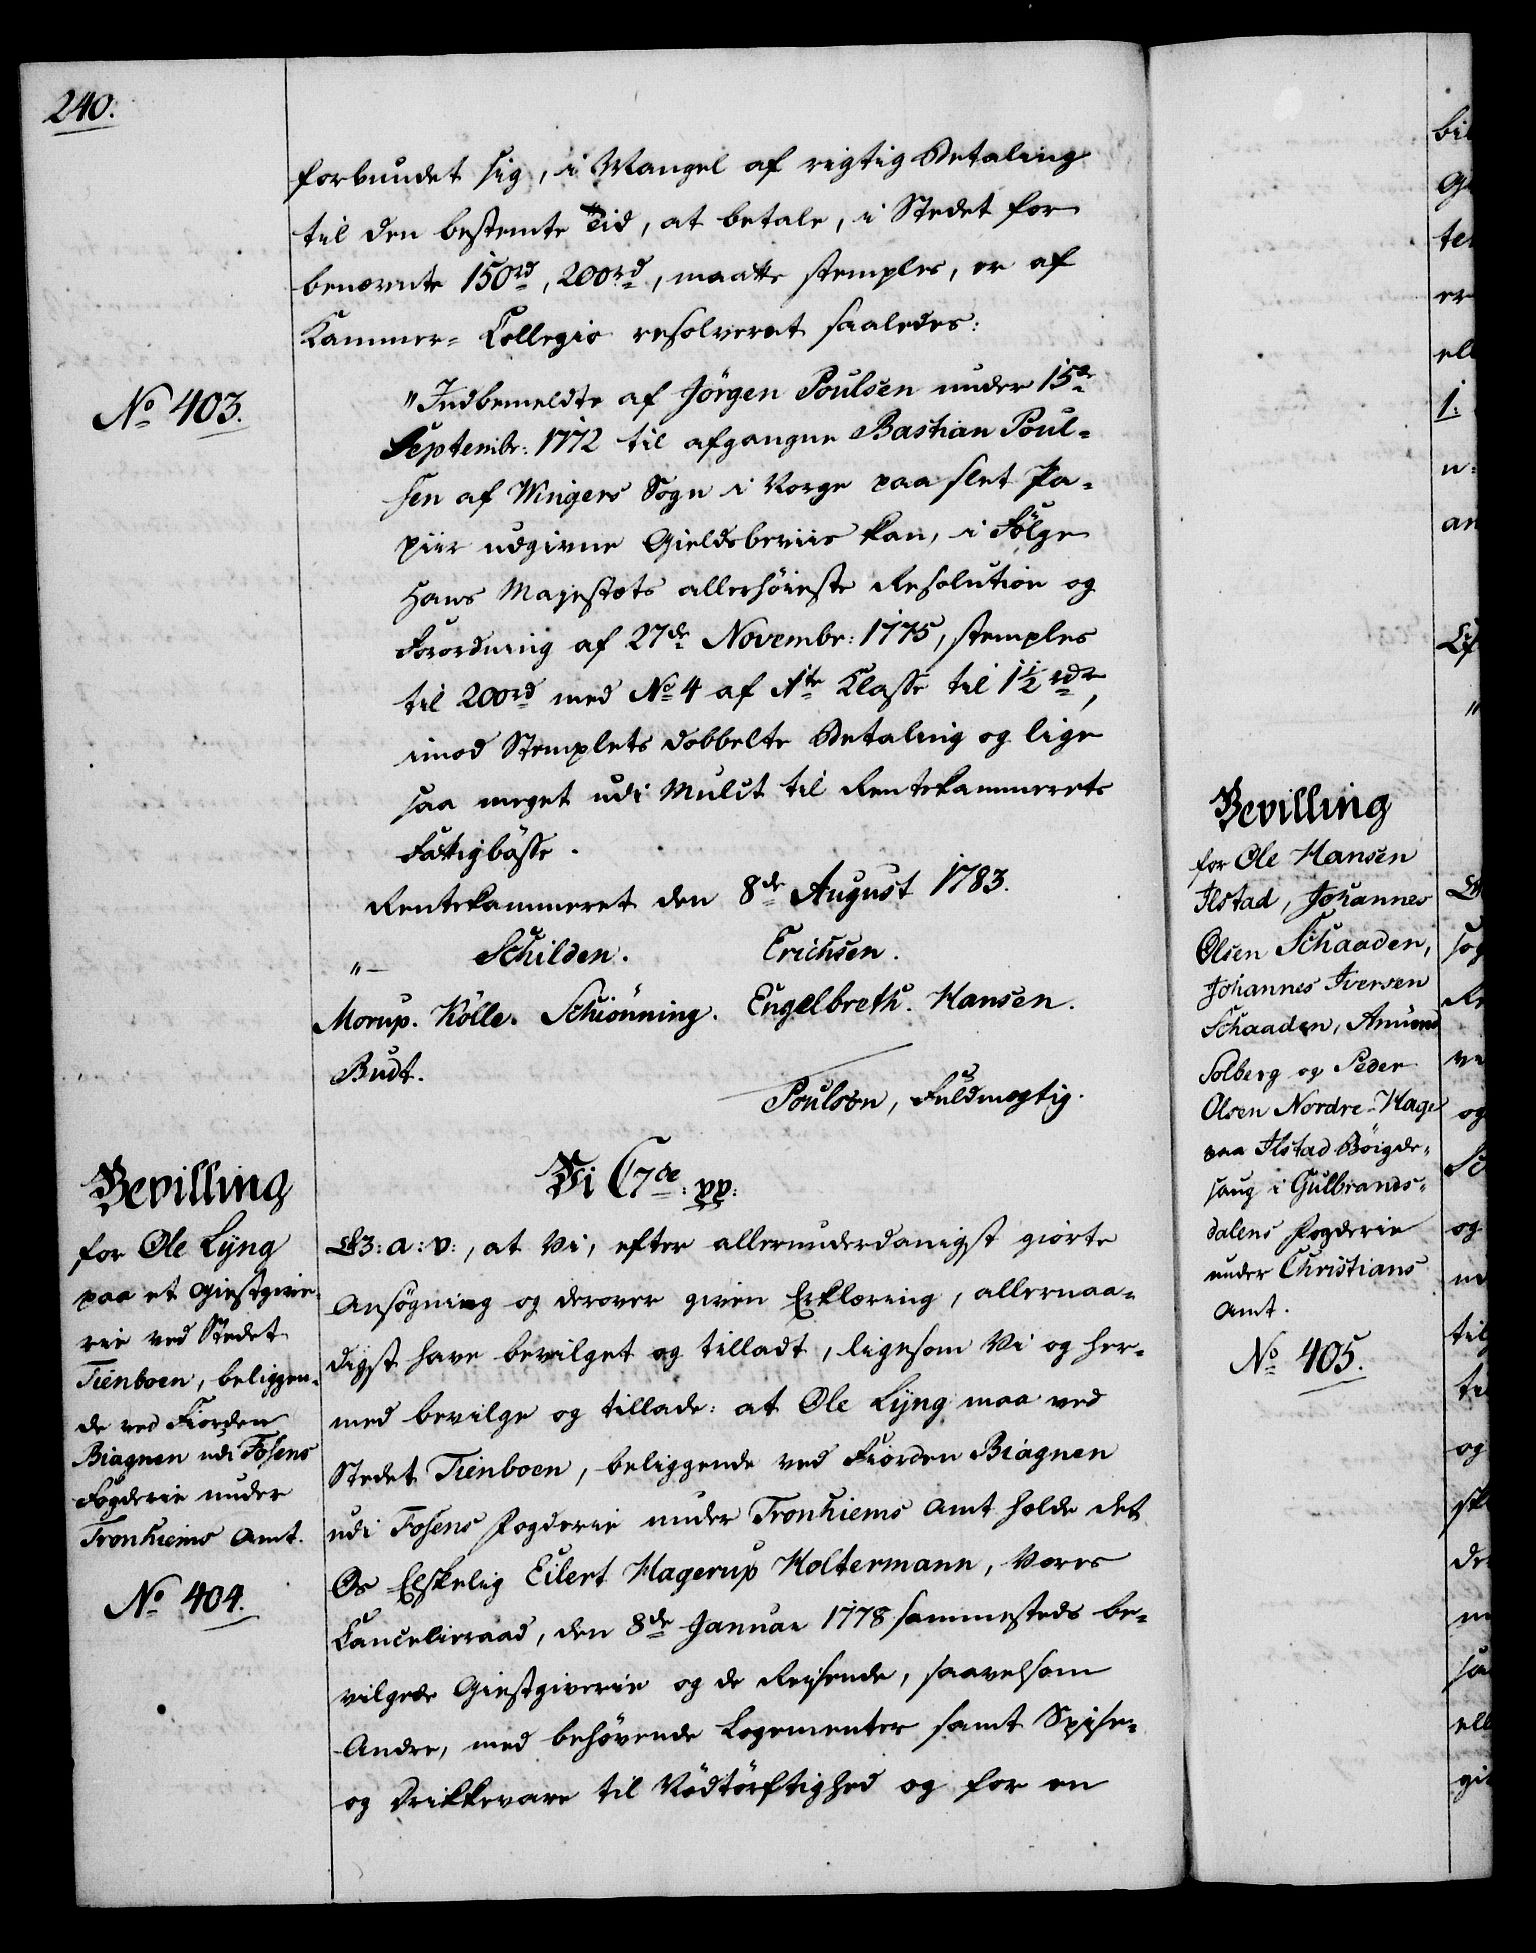 240.
forbundet sig, i Mangel af rigtig Betaling
til den bestemte Tid, at betale, i Stedet for
benævnte 150rd, 200rd, maatte stemples, er af
Kammer-Collegio resolveret saaledes:
No 403.
"Indbemeldte af Jörgen Poulsen under 15de
Septembr: 1772 til afgangne Bastian Poul-
sen af Wingers Sogn i Norge paa slet Pa-
piir udgivne Gieldsbeviis kan, i Fölge
Hans Majestæts allerhöieste Resolution og
Forordning af 27de Novembr: 1775, stemples
til 200rd med No 4 af 1te Klasse til 1½ rdr,
imod Stemplets dobbelte Betaling og lige
saa meget udi Mulct til Rentekammerets
Fattigbösse.
Rentekammeret den 8de August 1783.
"— Schilden. Erichsen.
Morup. Kölle. Schiönning. Engelbreth. Hansen.
Budt.
Poulson, Fuldmægtig.
Vi C7de: pp:
Bevilling
for Ole Lÿng
paa et Giestgive-
rie ved Stedet
Tienboen, beliggen-
de ved Fiorden
Biagnen udi Fosens
Fogderie under
Tronhiems Amt.
No 404.
G: a: v:, at Vi, efter allerunderdanigst giorte
Ansögning og derover given Erklæring, allernaa-
digst have bevilget og tilladt, ligesom Vi og her-
med bevilge og tillade: at Ole Lÿng maa ved
Stedet Tienboen, beliggende ved Fiorden Biagnen
udi Fosens Fogderie under Tronhiems Amt holde det
Os Elskelig Eilert Hagerup Holtermann, Vores
Cancelieraad, den 8de Januar 1778 sammesteds be-
vilgede Giestgiverie og de Reisende, saavelsom
Andre, med behövende Logementer samt Spise-
og Drikkevare til Nödtörftighed og for en
Bevilling
for Ole Hansen
Ilstad, Johannes
Olsen Schaaden,
Johannes Iversen
Schaaden, Amund
Solberg og Peder
Olsen Nordre-Hage
paa Ilstad Böigde-
saug i Gulbrands-
dalens Fogderie
under Christians
Amt.
No 405.